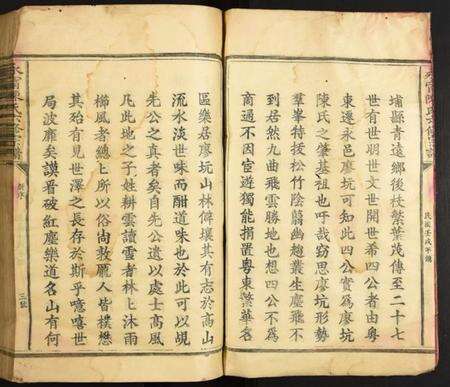 埔縣青遠鄉後枝繁葉茂傳至二十七
世有世明世文世開世希四公者由粵
東遷永邑廖坑可知此四公實爲廖坑
陳氏之肇基祖也吁哉窃思廖坑形勢
羣峯特拔松竹陰翳幽趣叢生塵飛不
到居然九曲飛雲勝地也想四公不爲
商過不因宦遊獨能捐置粵東繁華名
區樂居廖坑山林僻壤其有志於高山
流水淡世味而酣道味也於此可以覘
先公之真者矣自先公遺以處士高風
凡此地之子姓耕雲讀雪者林上沐雨
櫛風者總上所以俗尚敦龎人皆樸懋
其殆有見世澤之長存於斯乎噫嘻世
局波靡矣謨晋破紅塵樂道名山有何
民國壬戌年鐫
新序
三號